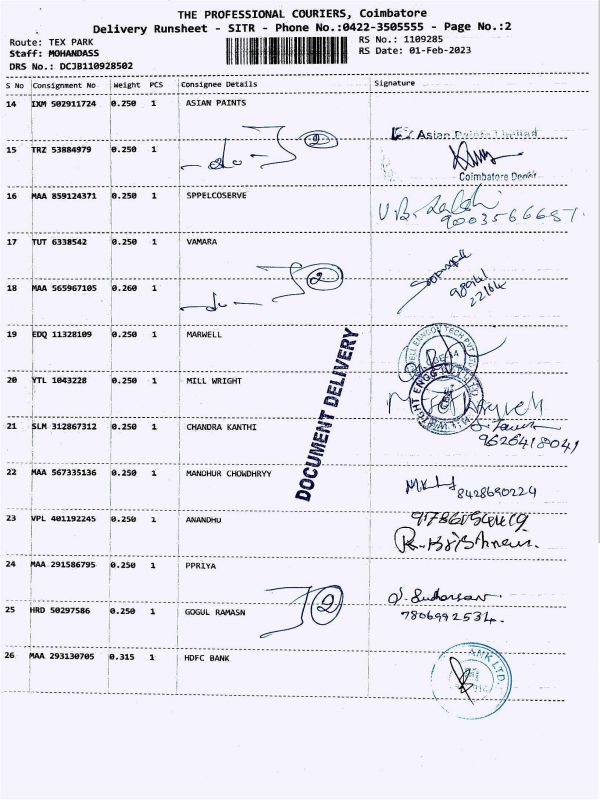 THE PROFESSIONAL COURIERS, Coimbatore
Delivery Runsheet - SITR - Phone No.:0422-3505555 - Page No.:2
Route: TEX PARK
Staff: MOHANDASS
DRS No.: DCJB110928502
RS No.: 1109285
RS Date: 01-Feb-2023
S No Consignment No Weight PCS Consignee Details Signature
14 IXM 502911724 0.250 1 ASIAN PAINTS
Asian Paints Limited
15 TRZ 53884979 0.250 1 -do- 2
Coimbatore Depot
16 MAA 859124371 0.250 1 SPPELCOSERVE
9003566687.
17 TUT 6338542 0.250 1 VAMARA
18 MAA 565967105 0.260 1 -do- 2
98941
22164
19 EDQ 11328109 0.250 1 MARWELL
20 YTL 1043228 0.250 1 MILL WRIGHT
21 SLM 312867312 0.250 1 CHANDRA KANTHI
9626418041
DOCUMENT DELIVERY
22 MAA 567335136 0.250 1 MANOHUR CHOWDHRYY
8428690224
23 VPL 401192245 0.250 1 ANANDHU
24 MAA 291586795 0.250 1 PPRIYA
2
25 HRD 50297586 0.250 1 GOGUL RAMASN
7806992534.
26 MAA 293130705 0.315 1 HDFC BANK
BANK LTD.